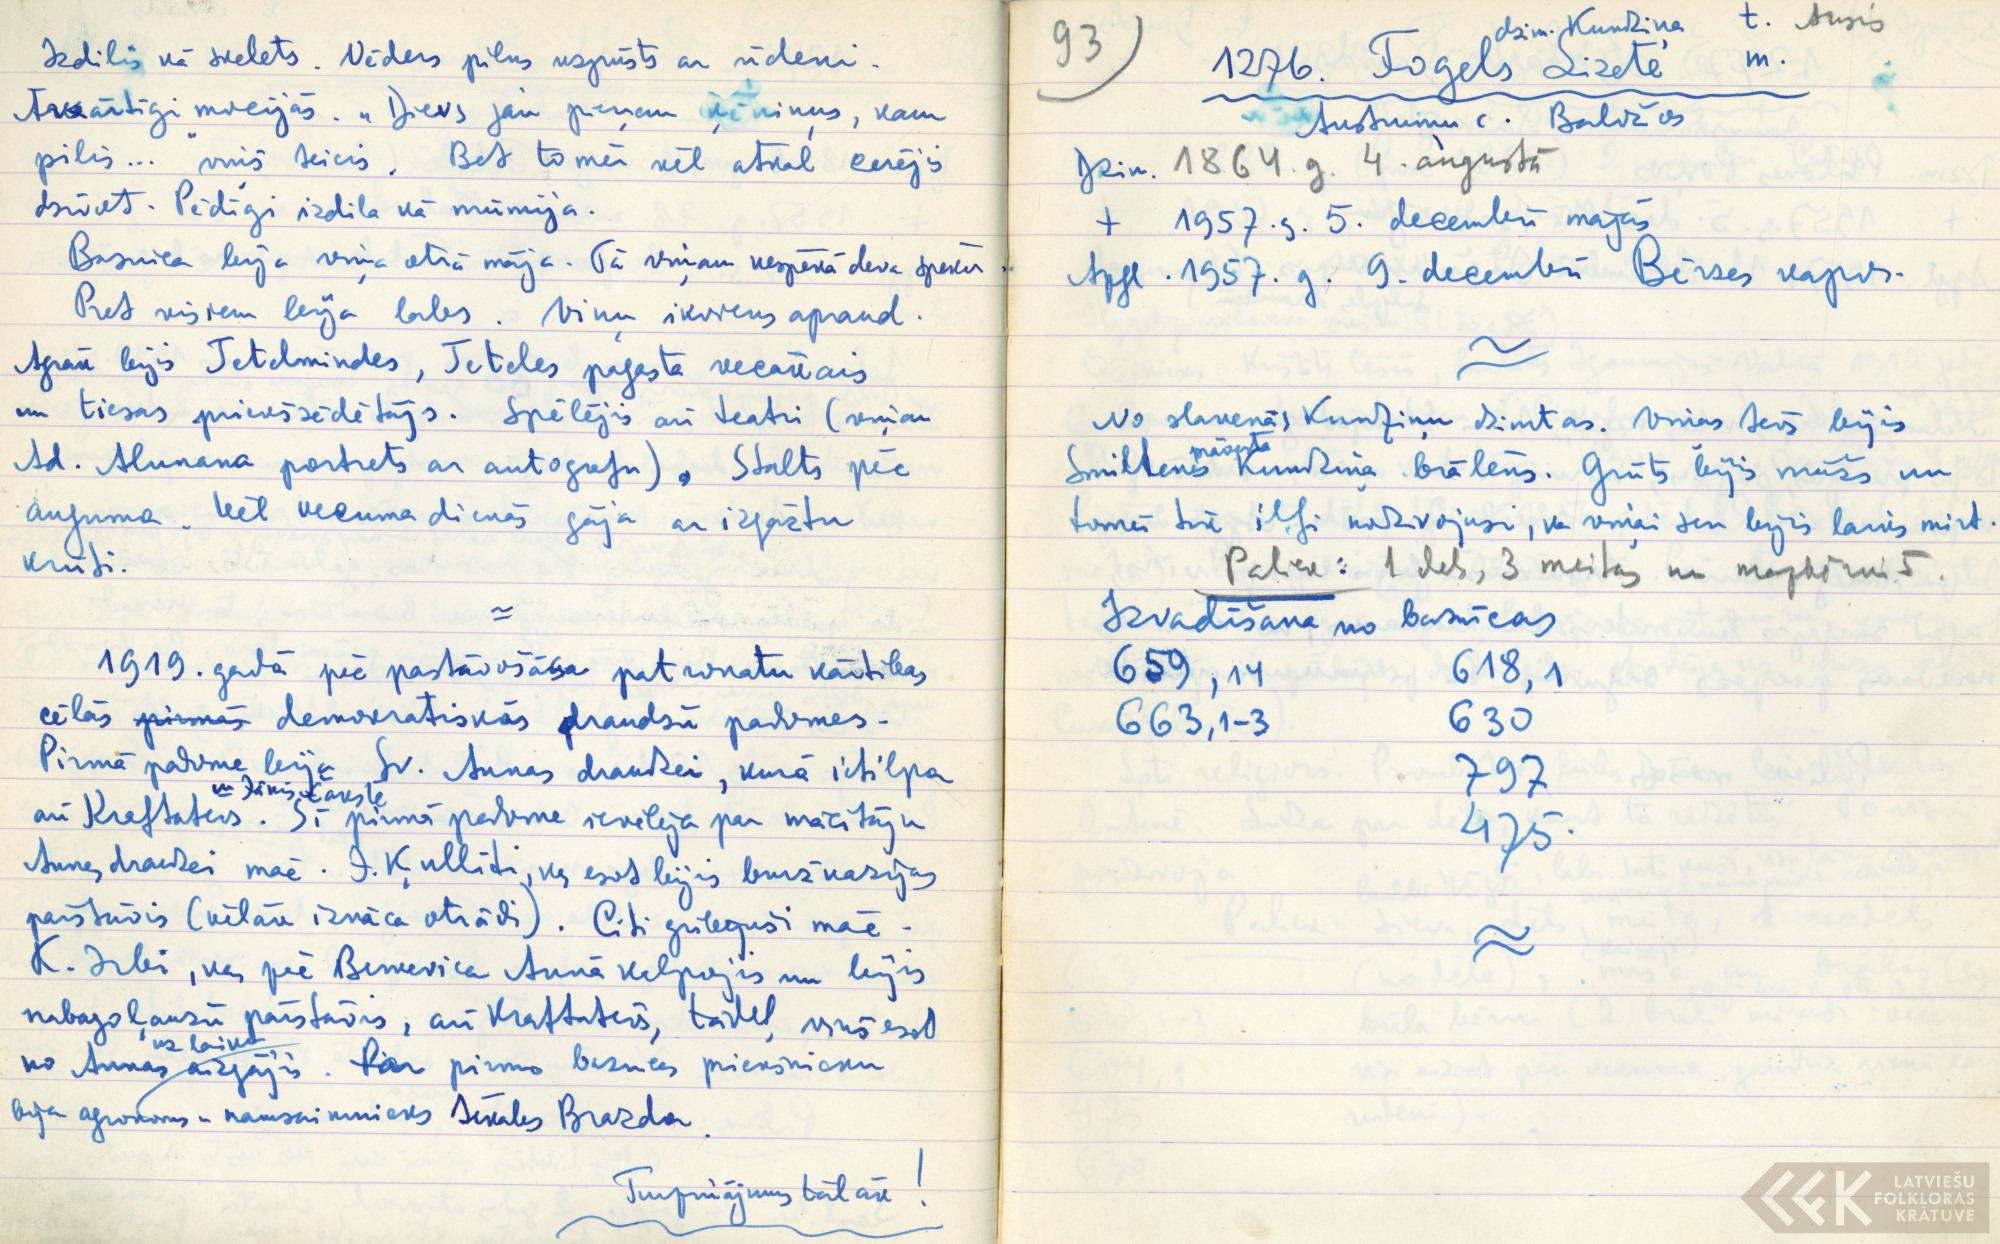 Izdilis kā skelets. Vēders pilns uzpūsts ar ūdeni.
Ārkārtīgi mocījās. "Dievs jau pieņem ķēniņus, kam
pilis..." viņš teicis. Bet tomēr vēl atkal cerējis
dzīvot. Pēdīgi izdila kā mūmija.
Baznīca bija viņa otrā māja. Tā viņam nespēkā deva spēku.
Pret visiem bija labs. Viņu ikviens apraud.
Agrāk bijis Tetelmindes, Teteles pagasta vecākais
un tiesas priekšsēdētājs. Spēlējis arī teātri (viņam
Ad. Alunana portrets ar autografu). Stalts pēc
auguma. Vēl vecuma dienās gāja ar izgāztu
krūti.
≈
1919. gadā pēc pastāvošās patronatu kārtības
cēlās pirmās demokratiskās draudžu padomes.
Pirmā padome bija Sv. Annas draudzei, kurā ietilpa
un Jānis Čakste
arī Kraftatēvs. Šī pirmā padome ievēlēja par mācītāju
Annas draudzei māc. J. Ķullīti, kas esot bijis buržuazijas
pārstāvis (vēlāk iznāca otrādi). Citi gribējuši māc.
K. Irbi, kas pēc Annā kalpojis un bijis
pārstāvis, arī Kraftatēvs, tādēļ viņš esot
uz laiku
no Annas aizgājis. Par pirmo baznīcas priekšnieku
bija agronoms - namsaimnieks Brazda.
Turpinājums tālāk!
93)
dzim. Kundziņa t. Ansis
1276. Fogels Lizete m.
Austrumu c. Baložos
Dzim. 1864. g. 4. augustā
+ 1957. g. 5. decembrī mājās
Apgl. 1957. g. 9. decembrī Bērzes kapos.
≈
No slavenās Kundziņu dzimtas. Viņas tēvs bijis
prāvesta
Smiltenes Kundziņa brālēns. Grūts bijis mūžs un
tomēr tik ilgi nodzīvojusi, ka viņai sen bijis laiks mirt.
Paliek: 1 dēls, 3 meitas un mazbērni
Izvadīšana no baznīcas
659, 14 618, 1
663, 1-3 630
797
475.
≈
LATVIEŠU
FOLKLORAS
KRĀTUVE